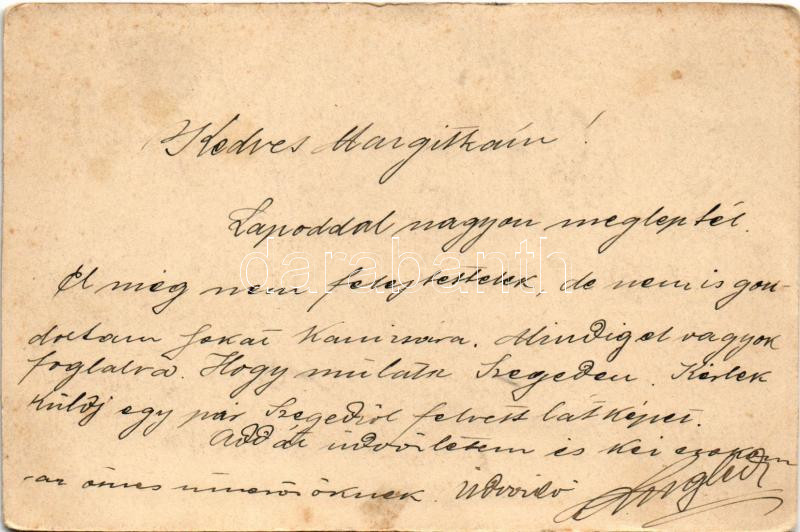 Kedves Margitkám!
Lapoddal nagyon megleptél.
El még nem felejtettelek, de nem is gon-
doltam sokat Kanizsára. Mindig el vagyok
foglalva. Hogy mulatk Szegeden. Kérlek
küldj egy pár Szegedről felvett látképet.
Add át üdvözletem és kéz
az ömes ismerősöknek. Üdvözlő
darabanth